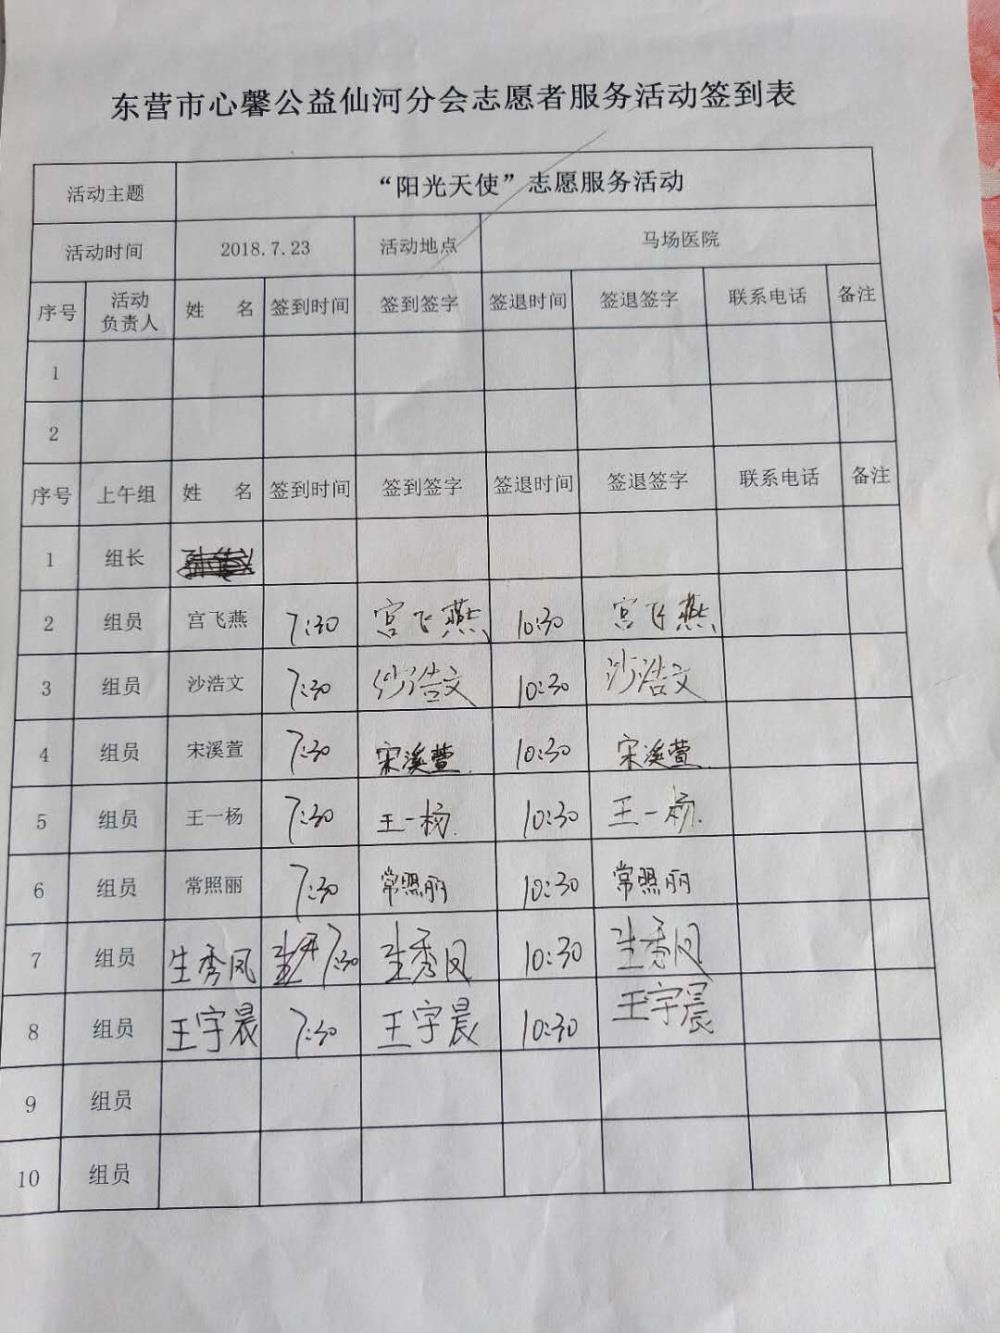 东营市心馨公益仙河分会志愿者服务活动签到表
活动主题 “阳光天使”志愿服务活动
活动时间 2018.7.23 活动地点 马场医院
序号 活动负责人 姓 名 签到时间 签到签字 签退时间 签退签字 联系电话 备注
1
2
序号 上午组 姓 名 签到时间 签到签字 签退时间 签退签字 联系电话 备注
1 组长
2 组员 宫飞燕 7:30 宫飞燕 10:30 宫飞燕
3 组员 沙浩文 7:30 沙浩文 10:30 沙浩文
4 组员 宋溪萱 7:30 宋溪萱 10:30 宋溪萱
5 组员 王一杨 7:30 王一杨. 10:30 王一杨.
6 组员 常照丽 7:30 常照丽 10:30 常照丽
7 组员 生秀凤 7:30 生秀凤 10:30 生秀凤
8 组员 王宇晨 7:30 王宇晨 10:30 王宇晨
9 组员
10 组员